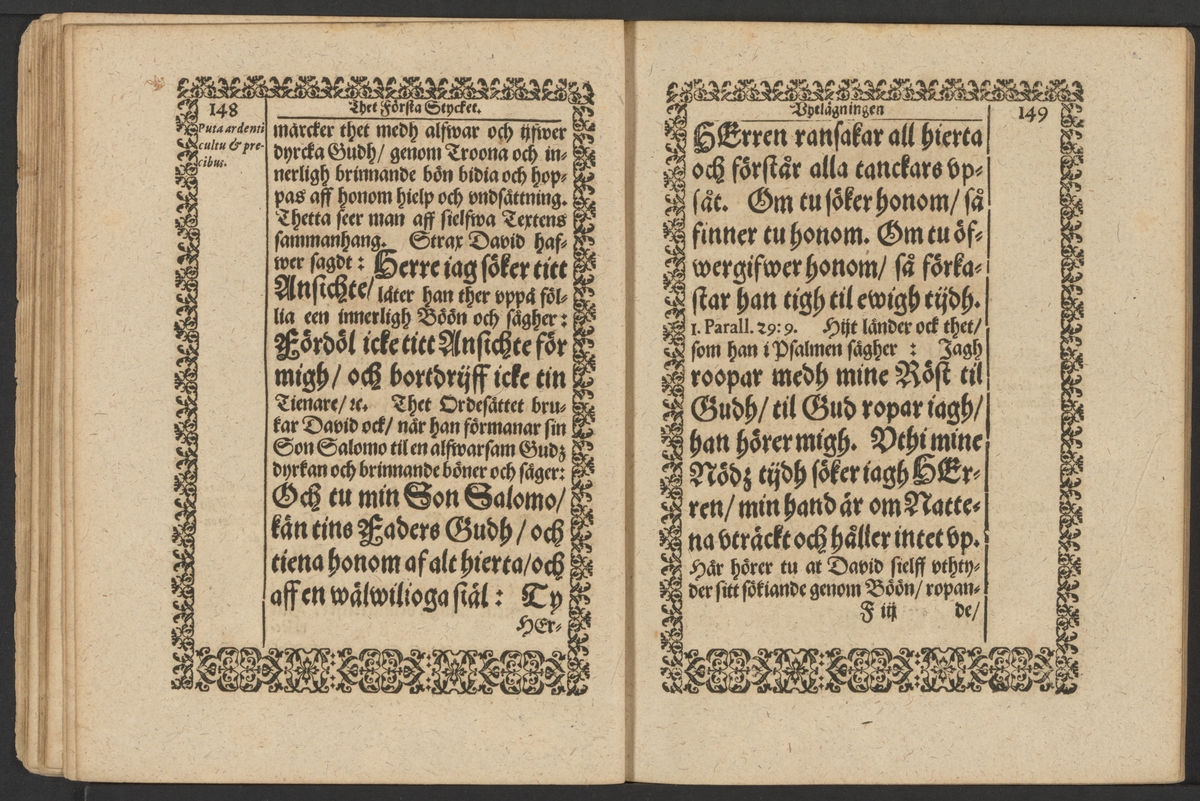 148
Thet Första Stycket.
Puta ardenti
cultu & pre-
cibus.
märcker thet medh alfwar och ijfwer
dyrcka Gudh/ genom Troona och in-
nerligh brinnande bön bidia och hop-
pas aff honom hielp och vndsättning.
Thetta seer man aff sielfwa Textens
sammanhang. Strax David haf-
wer sagdt: Herre iag söker titt
Ansichte/ låter han ther vppå föl-
lia een innerligh Böön och sägher:
Fördöl icke titt Ansichte för
migh/ och bortdrijff icke tin
Tienare/ ꝛc. Thet Ordesättet bru-
kar David ock/ när han förmanar sin
Son Salomo til en alfwarsam Gudz
dyrkan och brinnande böner och säger:
Och tu min Son Salomo/
kän tins Faders Gudh/ och
tiena honom af alt hierta/och
aff en wälwilioga siäl: Ty
HEr-
Vytlägningen
149
HErren ransakar all hierta
och förstår alla tanckars vp-
såt. Om tu söker honom/ så
finner tu honom. Om tu öf-
wergifwer honom/ så förka-
star han tigh til ewigh tijdh.
1. Parall. 29: 9. Hijt länder ock thet/
som han i Psalmen sägher: Jagh
roopar medh mine Röst til
Gudh/ til Gud ropar iagh/
han hörer migh. Vthi mine
Nödz tijdh söker iagh HEr-
ren/ min hand är om Natte-
na vträckt och håller intet vp.
Här hörer tu at David sielff vthty-
der sitt sökiande genom Böön/ ropan-
F iij de/